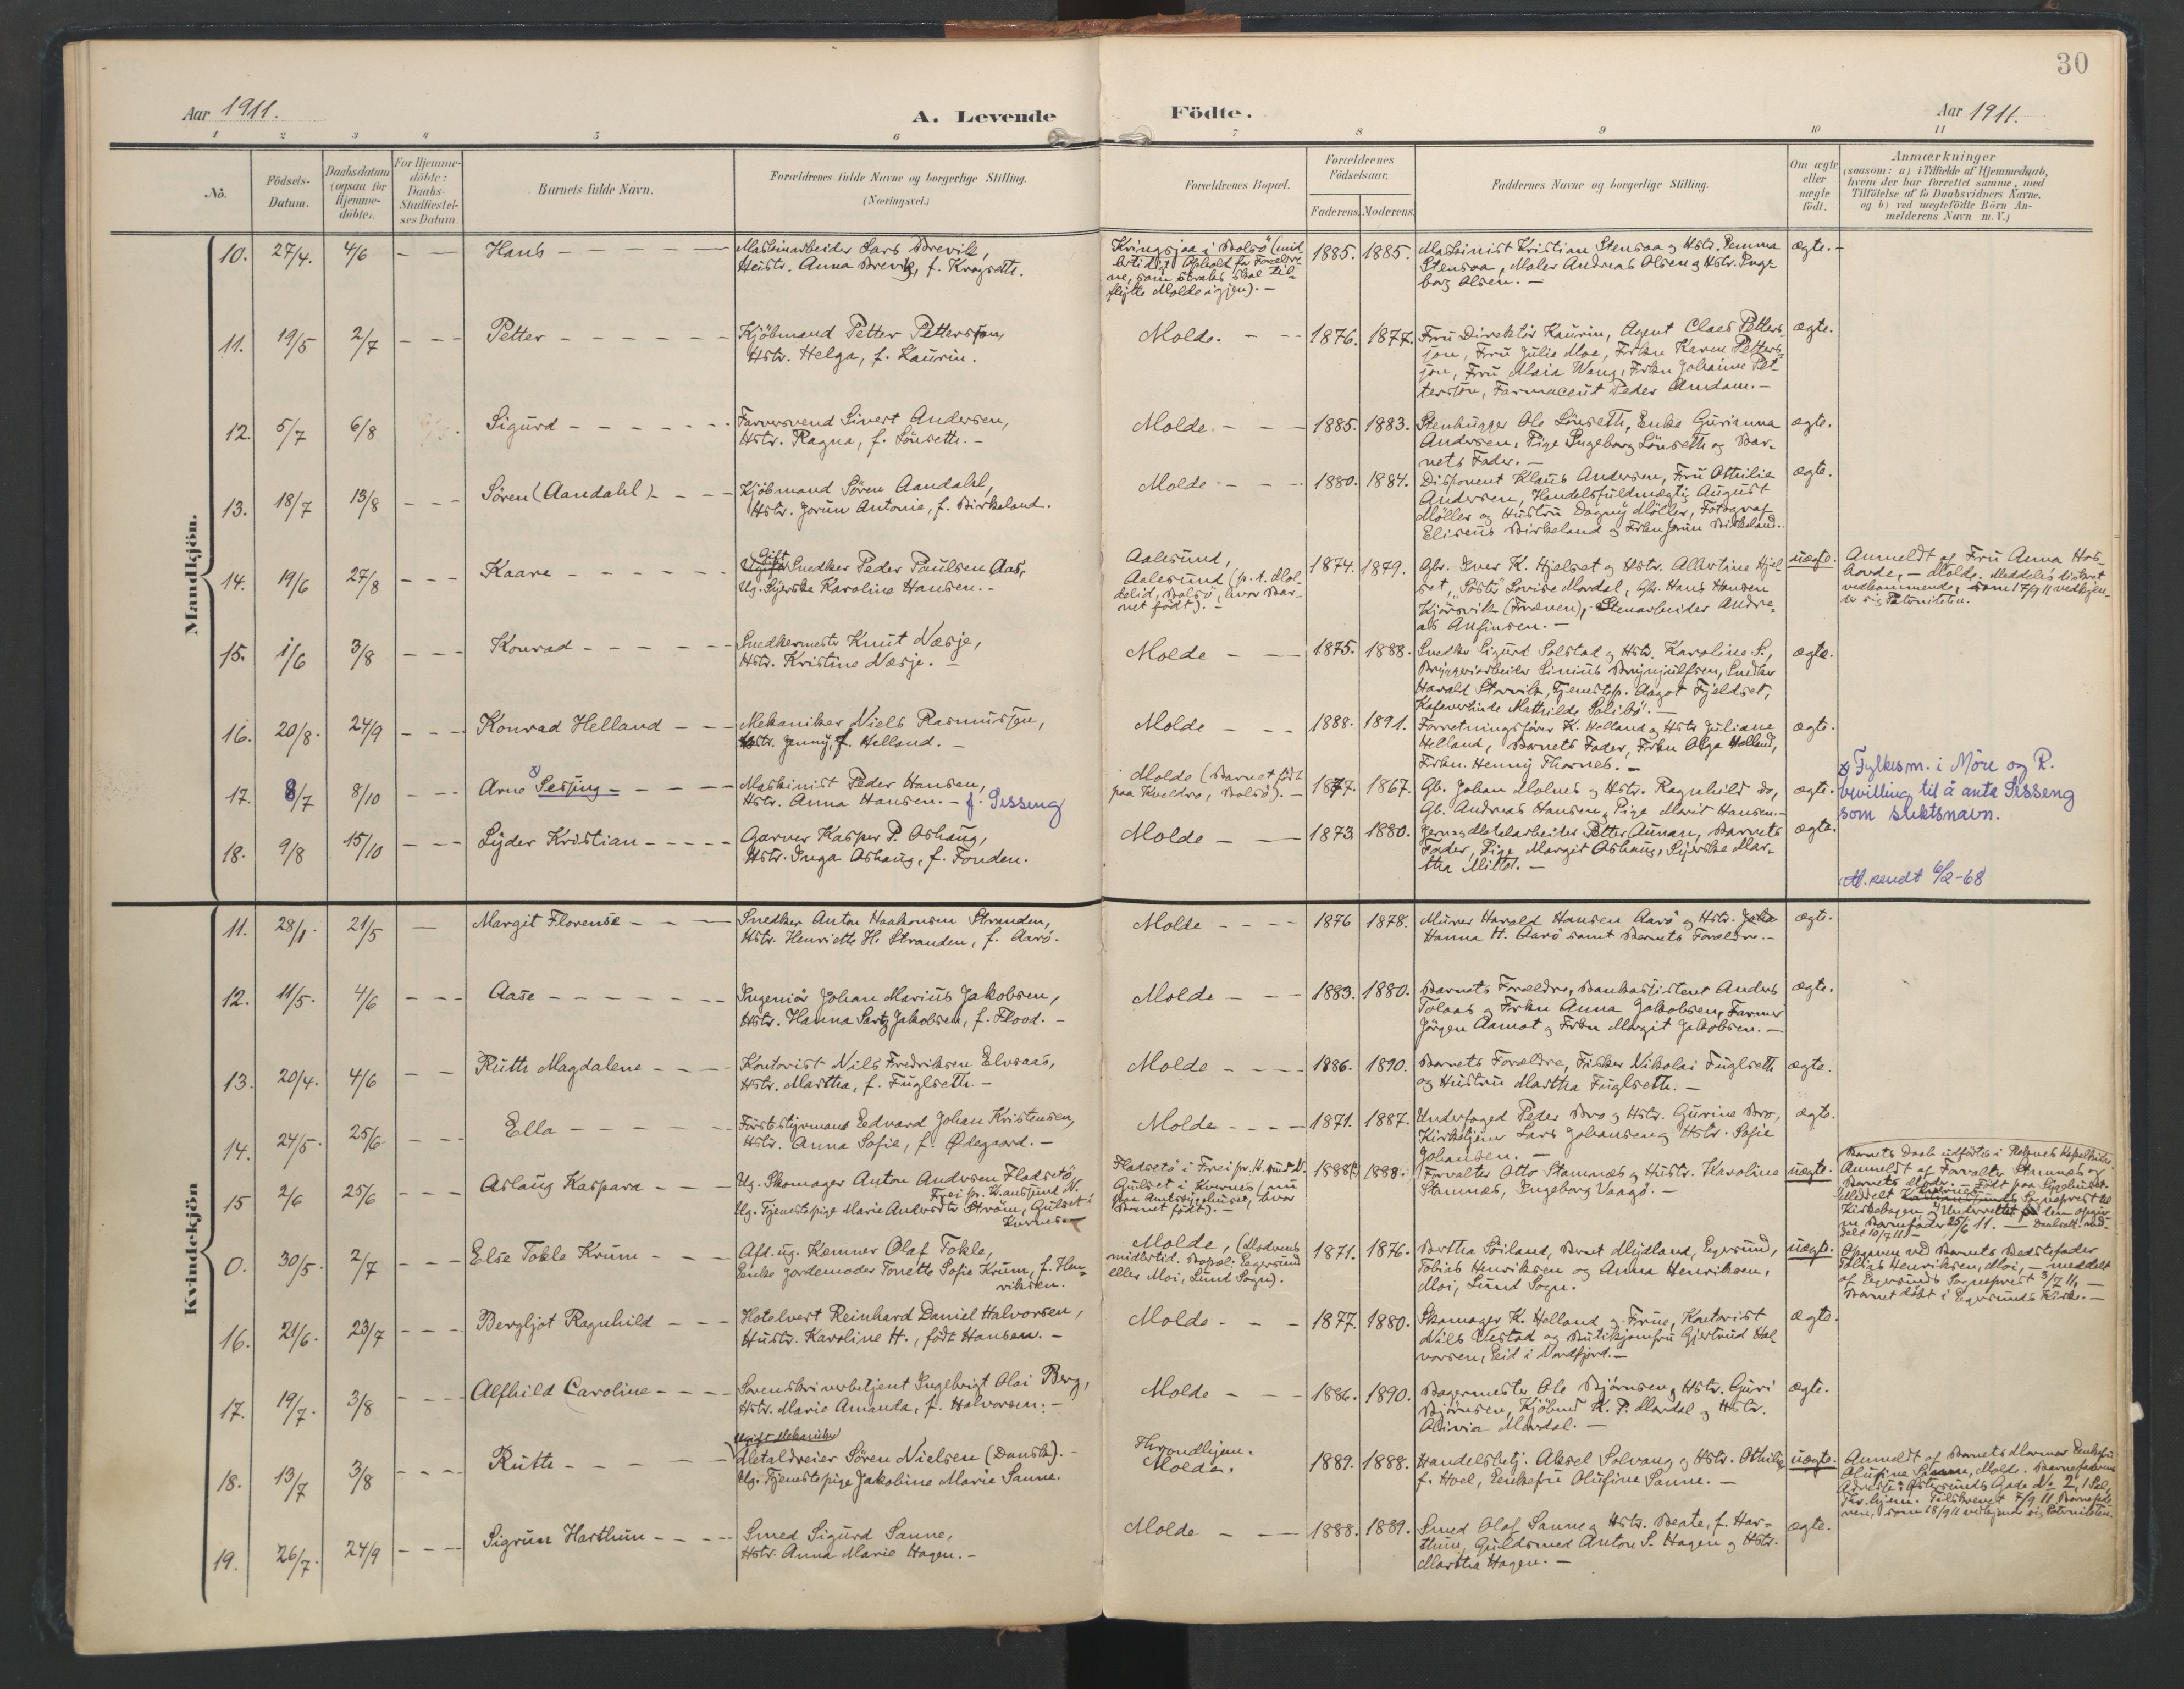 30
Aar 1911.
A. Levende Födte.
Aar 1911.
1 2 3 4 5 6 7 8 9 10 11
No.
Födsels-
Datum.
Daabsdatum
(ogsaa for
Hjemme-
döbte).
For Hjemme-
döbte:
Daabs-
Stadfæstel-
ses Datum.
Barnets fulde Navn.
Forældrenes fulde Navne og borgerlige Stilling.
(Næringsvei.)
Forældrenes Bopæl.
Forældrenes
Födselsaar.
Faderens. Moderens.
Faddernes Navne og borgerlige Stilling.
Om ægte
eller
uægte
födt.
Anmærkninger
(saasom: a) i Tilfælde af Hjemmedaab,
hvem der har forrettet samme, med
Tilföielse af to Daabsvidners Navne,
og b) ved uægtefödte Börn An-
melderens Navn m. V.)
Mandkjön.
10. 27/4. 4/6 Hans
Maskinarbeider Lars Brevik,
Hustr. Anna Brevik, f.
Kringsjaa i Bolsö (mid-
lertidigt Ophold for Forældre-
ne, som straks skal til-
flytte Molde igjen). -
1885. 1885.
Maskinist Kristian Stensaa og Hstr. Gemma
Stensaa, Maler Andreas Olsen og Hstr. Inge-
borg Olsen. -
ægte. -
11. 19/5 2/7 Petter
Kjöbmand Petter Petterson,
Hstr. Helga, f. Kaurin.
Molde. 1876. 1877.
Fru Direktör Kaurin, Agent Claes Petters-
son, Fru Julie Moe, Frkn Karen Petters-
son, Fru Maia Wang, Frkn Johanne Pet-
tersson, Farmaceut Peder Amdam. -
ægte.
12. 5/7 6/8 Sigurd
Farversvend Sivert Andersen,
Hstr. Ragna, f. Lönseth. -
Molde. 1885. 1883.
Stenhugger Ole Lönseth, Enke Gurianna
Andersen, Pige Ingeborg Lönseth og Bar-
nets Fader. -
ægte.
13. 18/7 13/8 Sören (Aandahl)
Kjöbmand Sören Aandahl,
Hstr. Jorun Antonie, f. Birkeland.
Molde 1880. 1884.
Disponent Klaus Andersen, Fru Othilie
Andersen, Handelsfuldmægtig August
Möller og Hustru Dagny Möller, Fotograf
Eliseus Birkeland og Frkn Jorun Birkeland.
ægte.
14. 19/6 27/8 Kaare
Gift
Ugift Snedker Peder Paulsen Aas,
Ug. Syerske Karoline Hansen. -
Aalesund,
Aalesund (p. t. Mol-
delid, Bolsö, hvor Bar-
net födt). -
1874. 1879.
Gbr. Iver K. Hjelset og Hstr. Albertine Hjel-
set, "Söster" Lovise Mordal, Gbr. Hans Hansen
Kjörsvik (Frænen), Stenarbeider Andre-
as Anfinsen. -
uægte.
Anmeldt af Fru Anna
Molde. Meddelt diskret
vedkommende, som 17/9 11 vedkjen-
der sig Paterniteten.
15. 1/6 3/8 Konrad
Snedkermester Knut Næsje,
Hstr. Kristine Næsje. -
Molde 1875. 1888.
Snedker Sigurd Solstad og Hstr. Karoline S.,
Bryggeriarbeider Sinius Brynjulfsen, Snedker
Harald Storvik, Tjenestep. Aagot Fjeldset,
Kafévertinde Mathilde Solibö. -
ægte.
16. 20/8. 24/9 Konrad Helland
Mekaniker Niels Rasmussen,
Hstr. Jenny, f. Helland. -
Molde 1888. 1891.
Forretningsförer K. Helland og Hstr. Juliane
Helland, Barnets Fader, Frkn Olga Helland,
Frkn. Henny Tharnes. -
ægte.
17. 8/7 8/10 Arne x Sessing
Maskinist Peder Hansen,
Hstr. Anna Hansen. - f. Sisseng
Molde (Barnet födt
paa Kveldsro, Bolsö). -
1877. 1867.
Gb. Johan Molnes og Hstr. Ragnhild do,
Gb. Andreas Hansen, Pige Marit Hansen. -
ægte.
x Fylkesm. i Möre og R.
bevilling til å anta Sisseng
som slektsnavn.
18. 9/8 15/10 Lyder Kristian
Garver Kasper P. Oshaug,
Hstr. Inga Oshaug, f. Fonden.
Molde 1873 1880.
Jern og Metalarbeider Petter Aunan, Barnets
Fader, Pige Margit Oshaug, Syerske Mar-
tha Mittet. -
ægte.
M. sendt 6/2-68
Kvindekjön
11. 28/1. 21/5 Margit Florense
Snedker Anton Haakonsen Stranden,
Hstr. Henriette H. Stranden, f. Aarö.
Molde 1876 1878.
Murer Harald Hansen Aarö og Hstr.
Hanna H. Aarö samt Barnets Forældre. -
ægte.
12. 11/5. 4/6 Aase
Ingeniör Johan Marius Jakobsen,
Hstr. Hanna Sartz Jakobsen, f. Flood. -
Molde 1883. 1880.
Barnets Forældre, Bankassistent Anders
Tolaas og Frkn Anna Jakobsen, Farmer
Jörgen Aamot og Frkn Margit Jakobsen. -
ægte.
13. 20/4. 4/6 Ruth Magdalene
Kontorist Nils Fredriksen Elvsaas,
Hstr. Martha, f. Fuglseth. -
Molde 1886. 1890.
Barnets Forældre, Fisker Nikolai Fuglseth
og Hustru Martha Fuglseth. -
ægte.
14. 24/5. 25/6 Ella
Förststyrmand Edvard Johan Kristensen,
Hstr. Anna Sofie, f. Ødegaard. -
Molde 1871. 1887.
Underfoged Peder Bro og Hstr. Gurine Bro,
Kirketjener Lars Johansen og Hstr. Sofie
Johansen. -
ægte.
15 2/6 25/6 Aslaug Kaspara
Ug. Skomager Anton Andersen Fladsetö,
Frei pr. Kr.ansund N.
Ug. Tjenestepige Marie Andersdtr Ström, Gulset i
Kvernes
Fladsetö i Frei pr. Kr.sund N.
Gulset i Kvernes (nu
paa Amtssygehuset, hvor
Barnet födt). -
1888(?) 1888.
Forvalter Otto Stamnæs og Hustr. Karoline
Stamnæs, Ingeborg Vaagö. -
uægte.
Anmeldt af Forvalter Stamnæs og
Barnets Moder. - Födt paa Sygehuset.
0. 30/5. 2/7 Else Tokle Krum
Afd. ug. Kæmner Olaf Tokle,
Enke Jordemoder Tonette Sofie Krum, f. Hen-
riksen.
Molde, (Moderens
midlertid. Bopæl: Egersund
eller Moi, Lund Sogn).
1871. 1876.
Bertha Söiland, Bernt Mydland, Egersund,
Tobias Henriksen og Anna Henriksen,
Moi, Lund Sogn.
uægte.
Opgaven ved Barnets Bedstefader
Tobias Henriksen, Moi, - meddelt
af Egersunds Sogneprest 3/7 11. -
Barnet döbt i Egersunds Kirke. -
16. 21/6. 23/7 Bergljot Ragnhild
Hotelvert Reinhard Daniel Halvorsen,
Hustr. Karoline H., födt Hansen. -
Molde. 1877. 1880.
Skomager K. Helland og Frue, Kontorist
Nils Vestad og Butikjomfru Gjertrud Hal-
vorsen, Eid i Nordfjord. -
ægte.
17. 19/7. 3/8 Alfhild Caroline
Sorenskriverbetjent Ingebrigt Olai Berg,
Hstr. Marie Amanda, f. Halvorsen. -
Molde 1886. 1890.
Bagermester Ole Björnsen og Hstr. Guri
Björnsen, Kjöbmd K. P. Mordal og Hstr.
Olivia Mordal. -
ægte.
18. 13/7 3/8 Ruth
Ugift Mekaniker
Metaldreier Sören Nielsen (Dansk). -
Ug. Tjenestepige Jakobine Marie Sanne.
Throndhjem.
Molde.
1889. 1888.
Handelsbetj. Aksel Solvang og Hstr. Othilie
f. Hoel, Enkefru Olufine Sanne. -
uægte.
Anmeldt af Barnets Mormor Enkefru
Olufine Sanne, Molde. Barnefaderens
Adresse: Østersunds Gade No 2, 1 Sal,
Thr.hjem. Tilskrevet 7/9 11 Barnefade-
ren, som 18/9 11 vedkjender sig Paterniteten.
19. 26/7. 24/9 Sigrun Harthun
Smed Sigurd Sanne,
Hstr. Anna Marie Hagen. -
Molde 1888. 1889.
Smed Olaf Sanne og Hstr. Beate, f. Har-
thun, Guldsmed Anton S. Hagen og Hstr.
Martha Hagen. -
ægte.